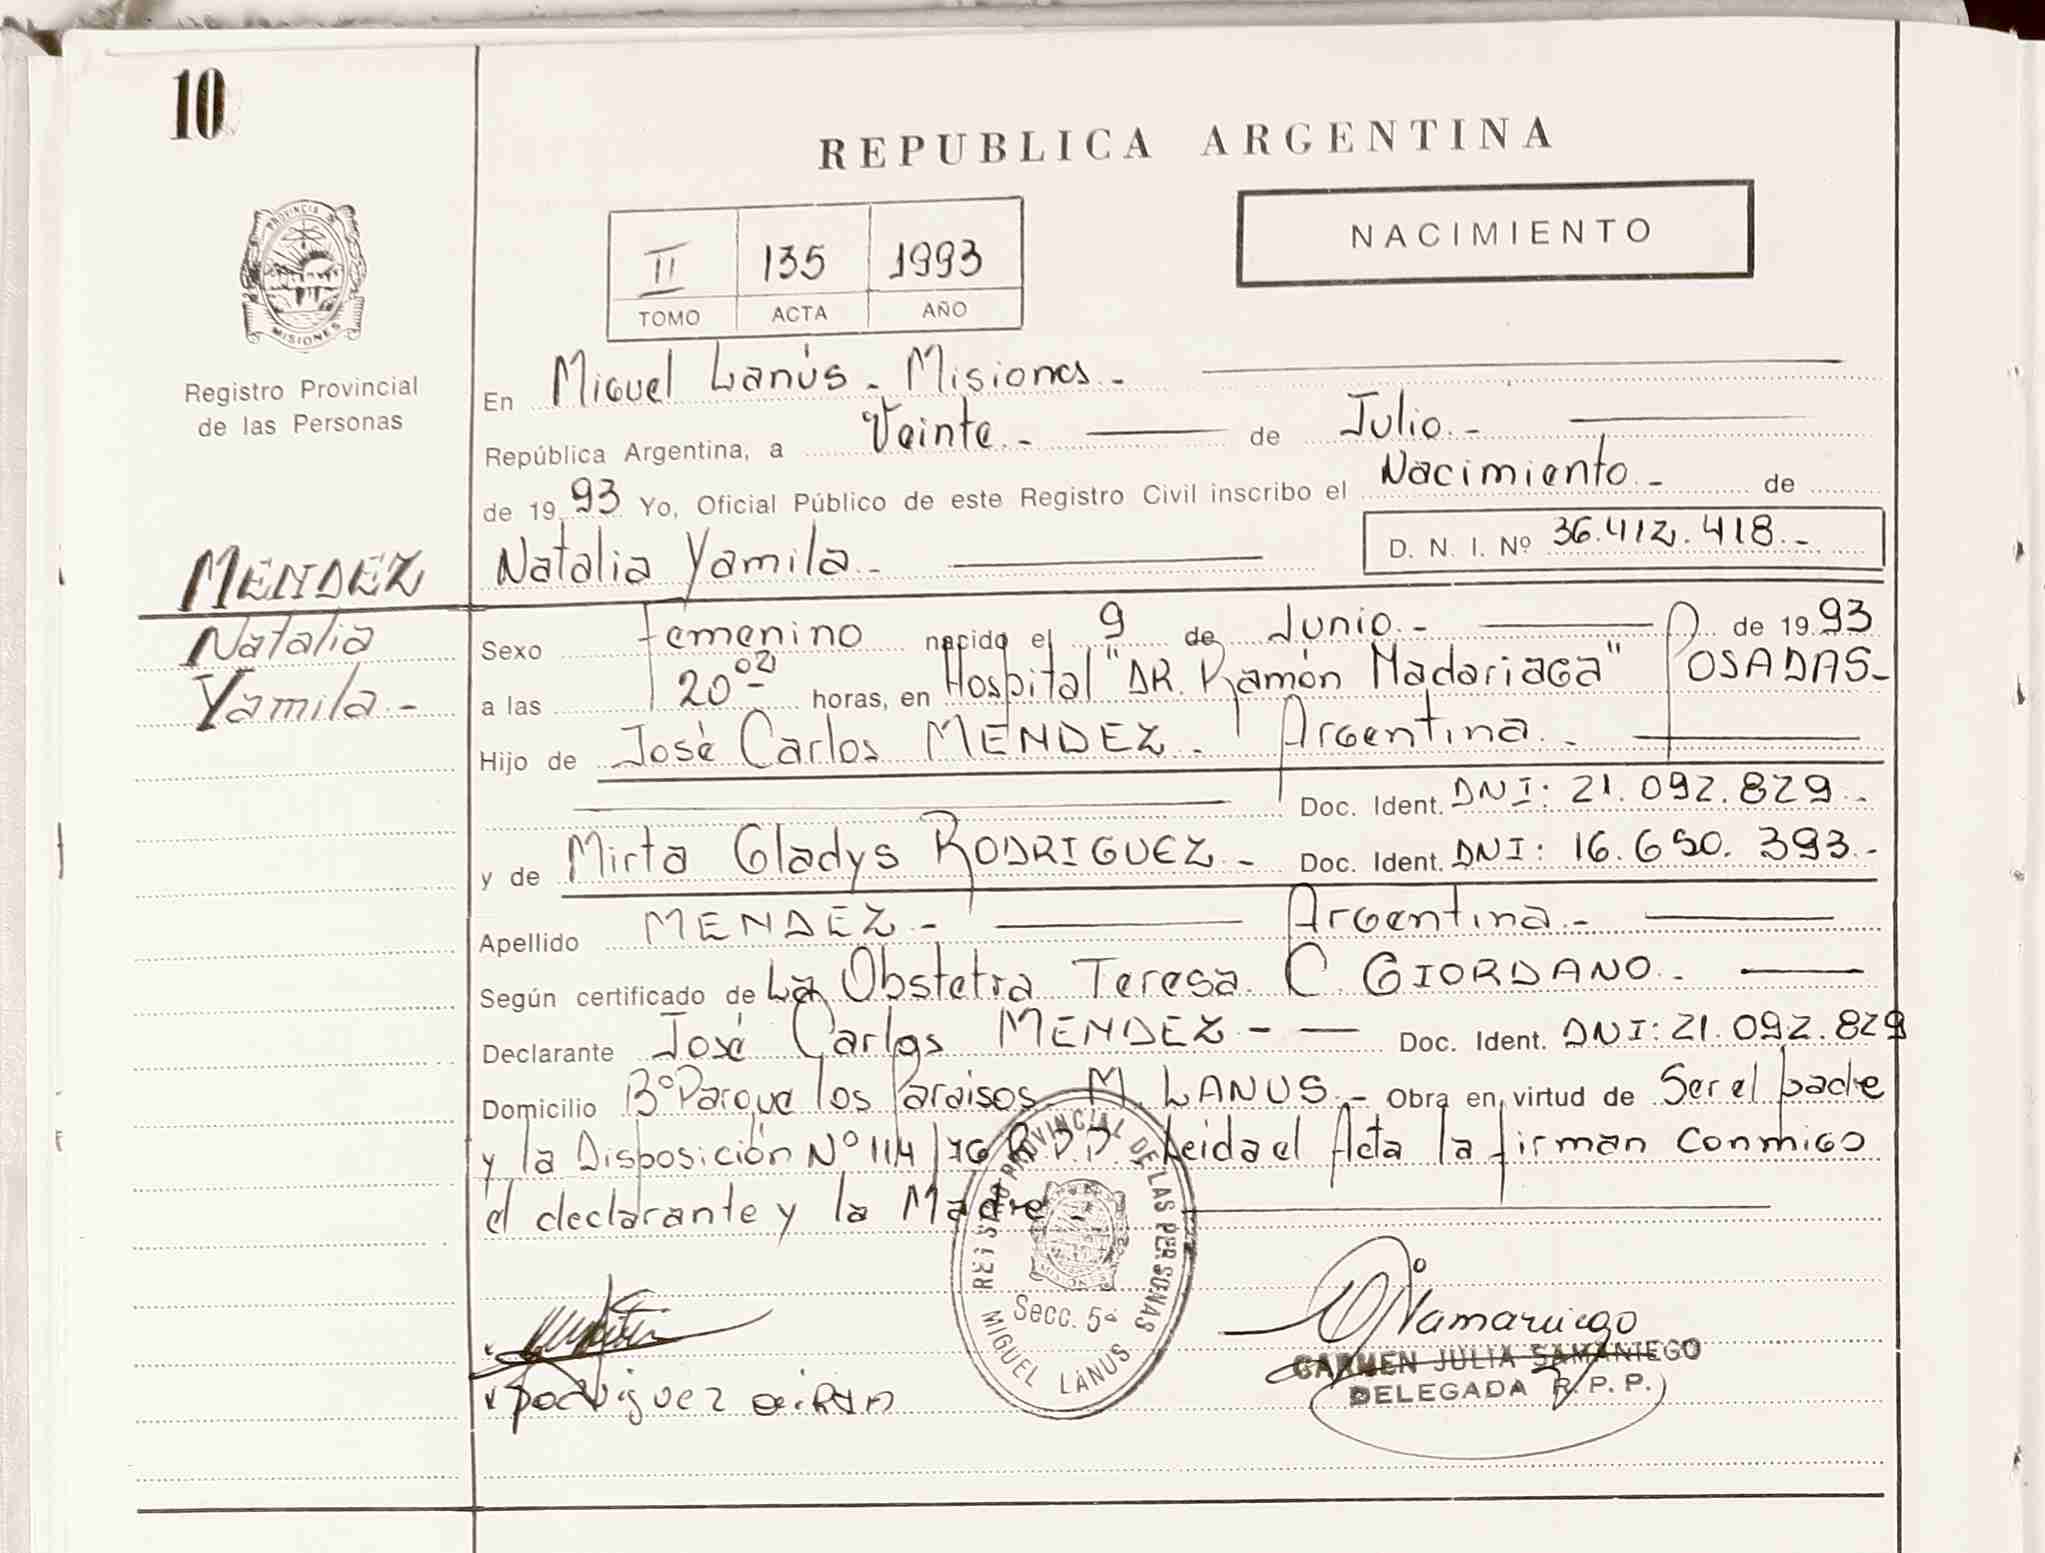 10
REPUBLICA ARGENTINA
NACIMIENTO
II 135 1993
TOMO ACTA AÑO
PROVINCIA DE MISIONES
Registro Provincial
de las Personas
En Miguel Lanús - Misiones -
República Argentina, a Veinte - de Julio -
de 1993 Yo, Oficial Público de este Registro Civil inscribo el Nacimiento - de
MENDEZ
Natalia
Yamila -
Natalia Yamila - D. N. I. Nº 36.412.418 -
Sexo femenino nacido el 9 de Junio - de 1993
a las 20 02 horas, en Hospital "DR. Ramón Madariaga" POSADAS -
Hijo de José Carlos MENDEZ - Argentina -
Doc. Ident. DNI: 21.092.829 -
y de Mirta Gladys RODRIGUEZ - Doc. Ident. DNI: 16.650.393 -
Apellido MENDEZ - Argentina -
Según certificado de La Obstetra Teresa C. GIORDANO -
Declarante José Carlos MENDEZ - - Doc. Ident. DNI: 21.092.829
Domicilio Bº Parque los Paraisos M. LANUS - Obra en virtud de Ser el padre
y la Disposición Nº 114/76 Leida el Acta la firman conmigo
el declarante y la Madre -
REGISTRO PROVINCIAL DE LAS PERSONAS
Secc. 5ª
MIGUEL LANUS
Rodriguez
CARMEN JULIA SAMANIEGO
DELEGADA R. P. P.